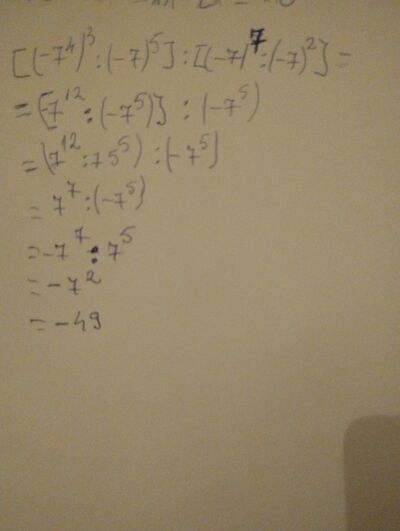 [(-7⁴)³:(-7)⁵]:[(-7)⁷:(-7)²]=
=[7¹²:(-7⁵)]:(-7⁵)
=(7¹²:75⁵):(-7⁵)
=7⁷:(-7⁵)
=-7⁷:7⁵
=-7²
=-49